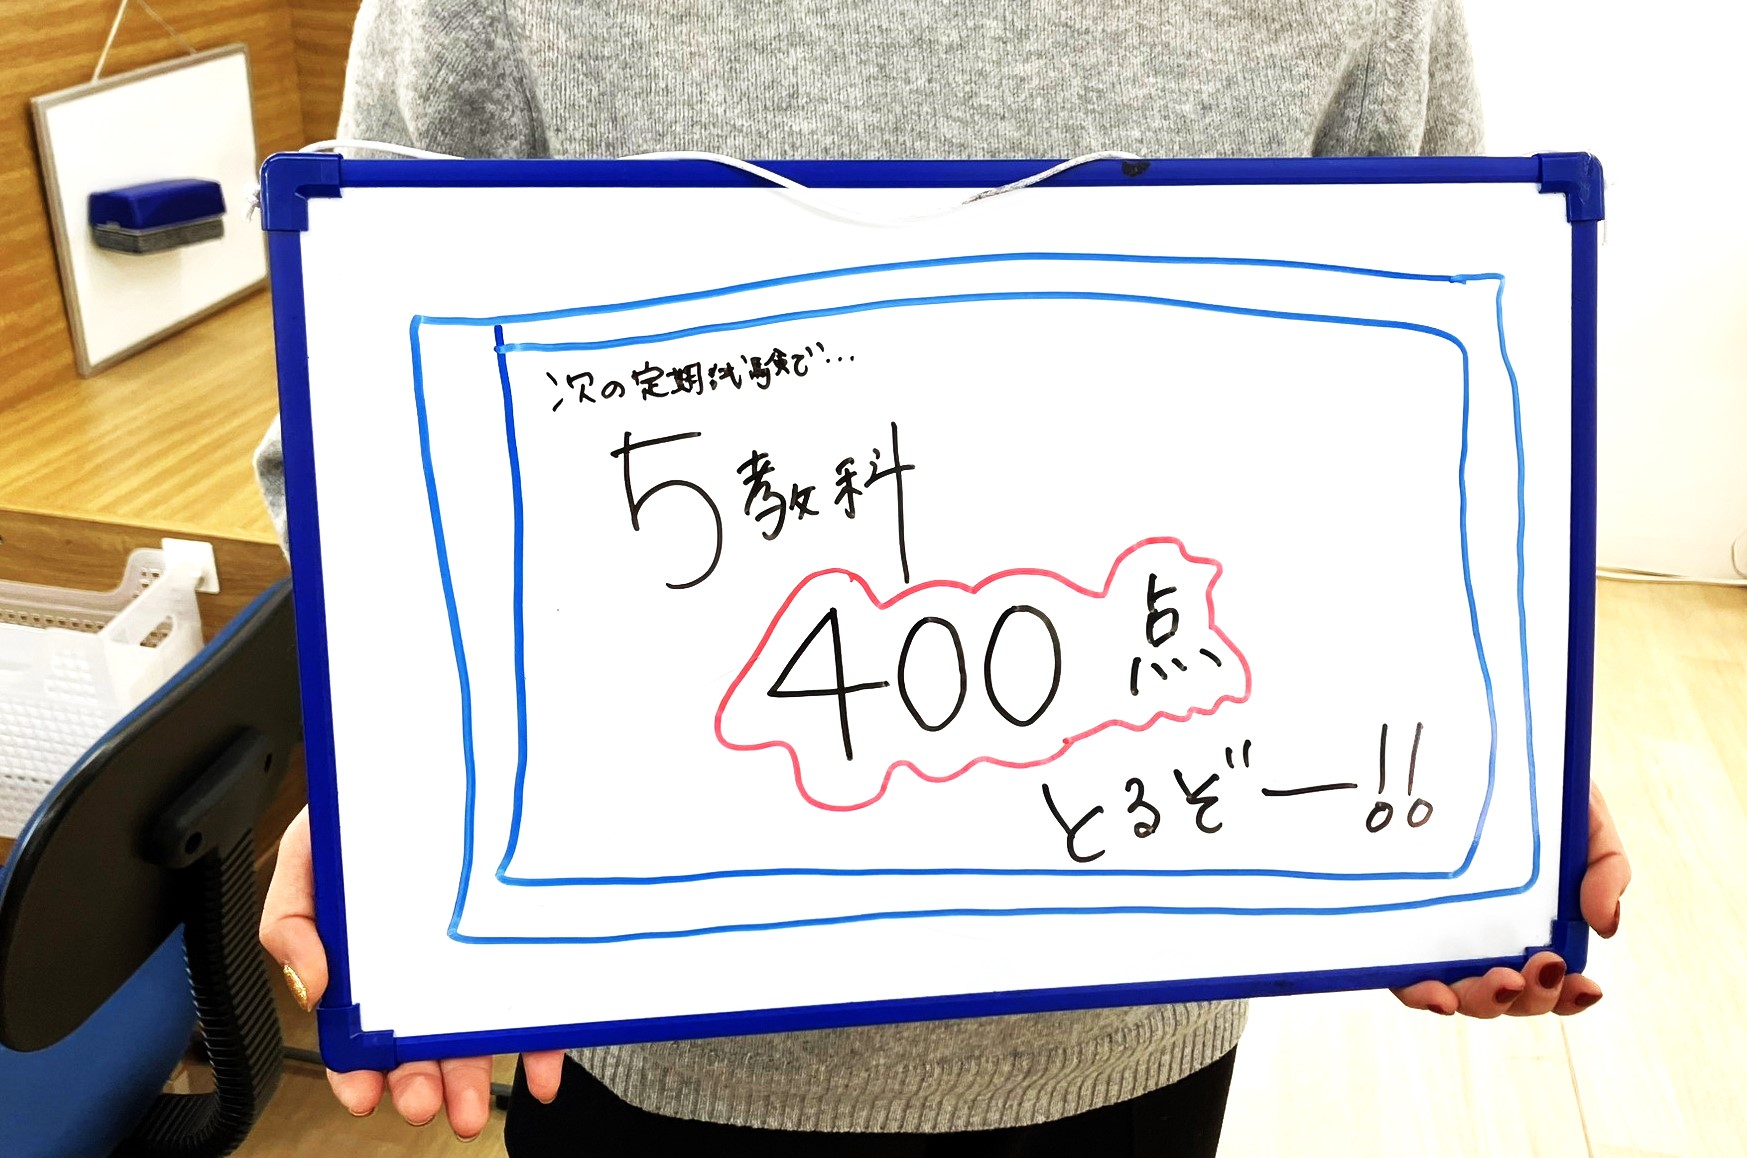 次の定期試験で…
5教科
400点
とるぞー!!